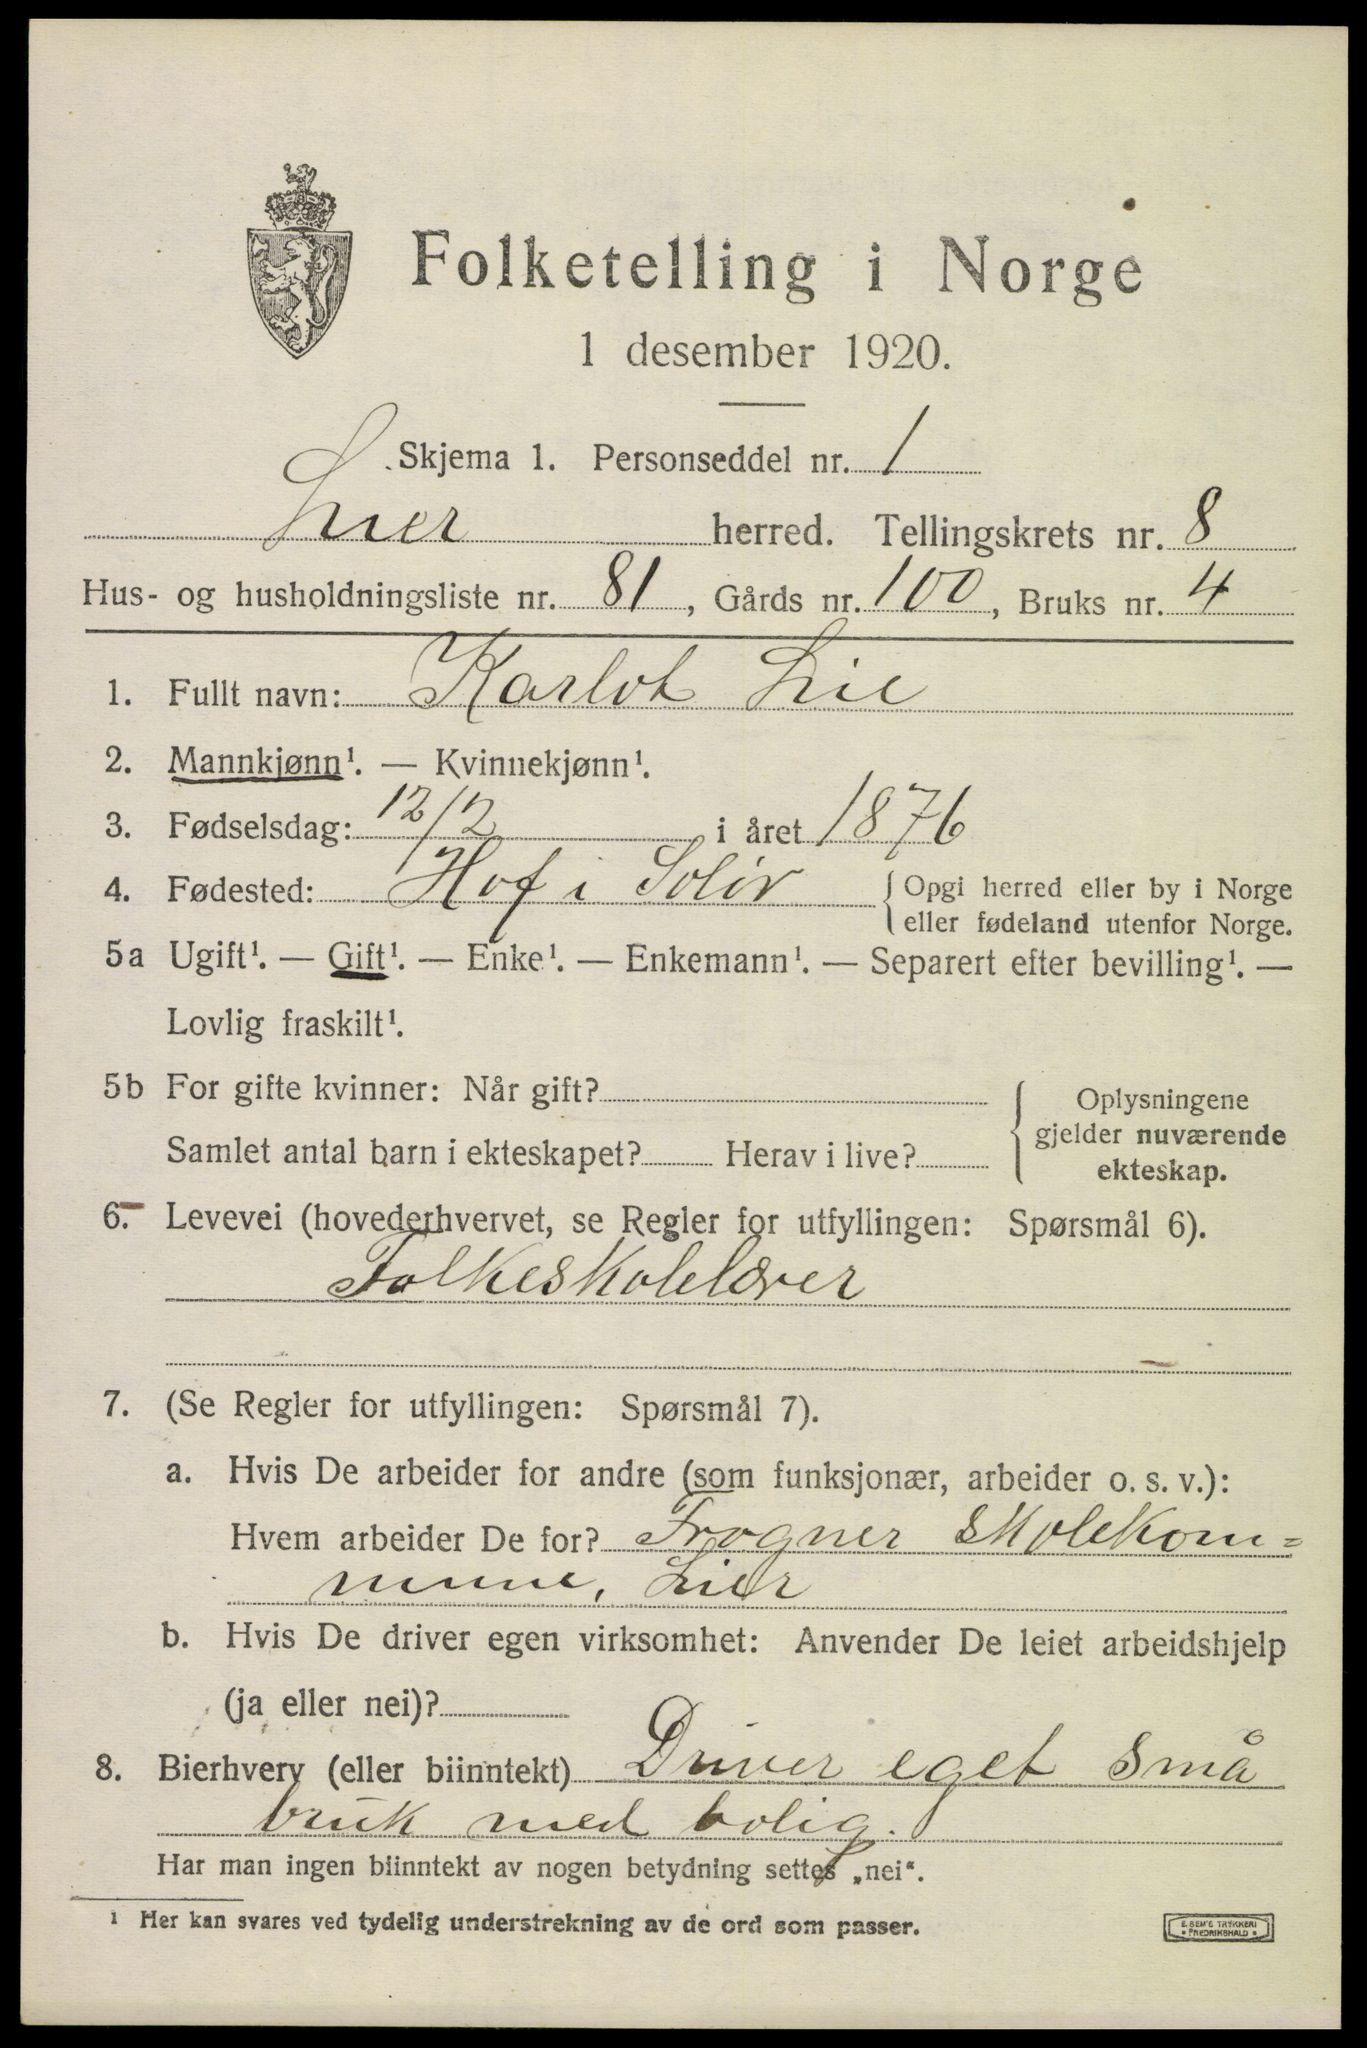 Folketelling i Norge
1 desember 1920.
Skjema 1. Personseddel nr. 1
Lier herred. Tellingskrets nr. 8
Hus- og husholdningsliste nr. 81, Gårds nr. 100, Bruks nr. 4
1. Fullt navn: Karlot Lie
2. Mannkjønn¹. — Kvinnekjønn¹.
3. Fødselsdag: 12/2 i året 1876
4. Fødested: Hof i Solør { Opgi herred eller by i Norge
eller fødeland utenfor Norge.
5a Ugift¹. — Gift¹. — Enke¹. — Enkemann¹. — Separert efter bevilling¹. —
Lovlig fraskilt¹.
5b For gifte kvinner: Når gift?
Samlet antal barn i ekteskapet? Herav i live?
Oplysningene
gjelder nuværende
ekteskap.
6. Levevei (hovederhvervet, se Regler for utfyllingen: Spørsmål 6).
Folkeskolelærer
7. (Se Regler for utfyllingen: Spørsmål 7).
a. Hvis De arbeider for andre (som funksjonær, arbeider o. s. v.):
Hvem arbeider De for? Frogner skolekom=
mune, Lier
b. Hvis De driver egen virksomhet: Anvender De leiet arbeidshjelp
(ja eller nei)?
8. Bierhverv (eller biinntekt) Driver eget små
bruk med bolig.
Har man ingen biinntekt av nogen betydning settes „nei“.
¹ Her kan svares ved tydelig understrekning av de ord som passer.
E. SEM'S TRYKKERI
• FREDRIKSHALD •